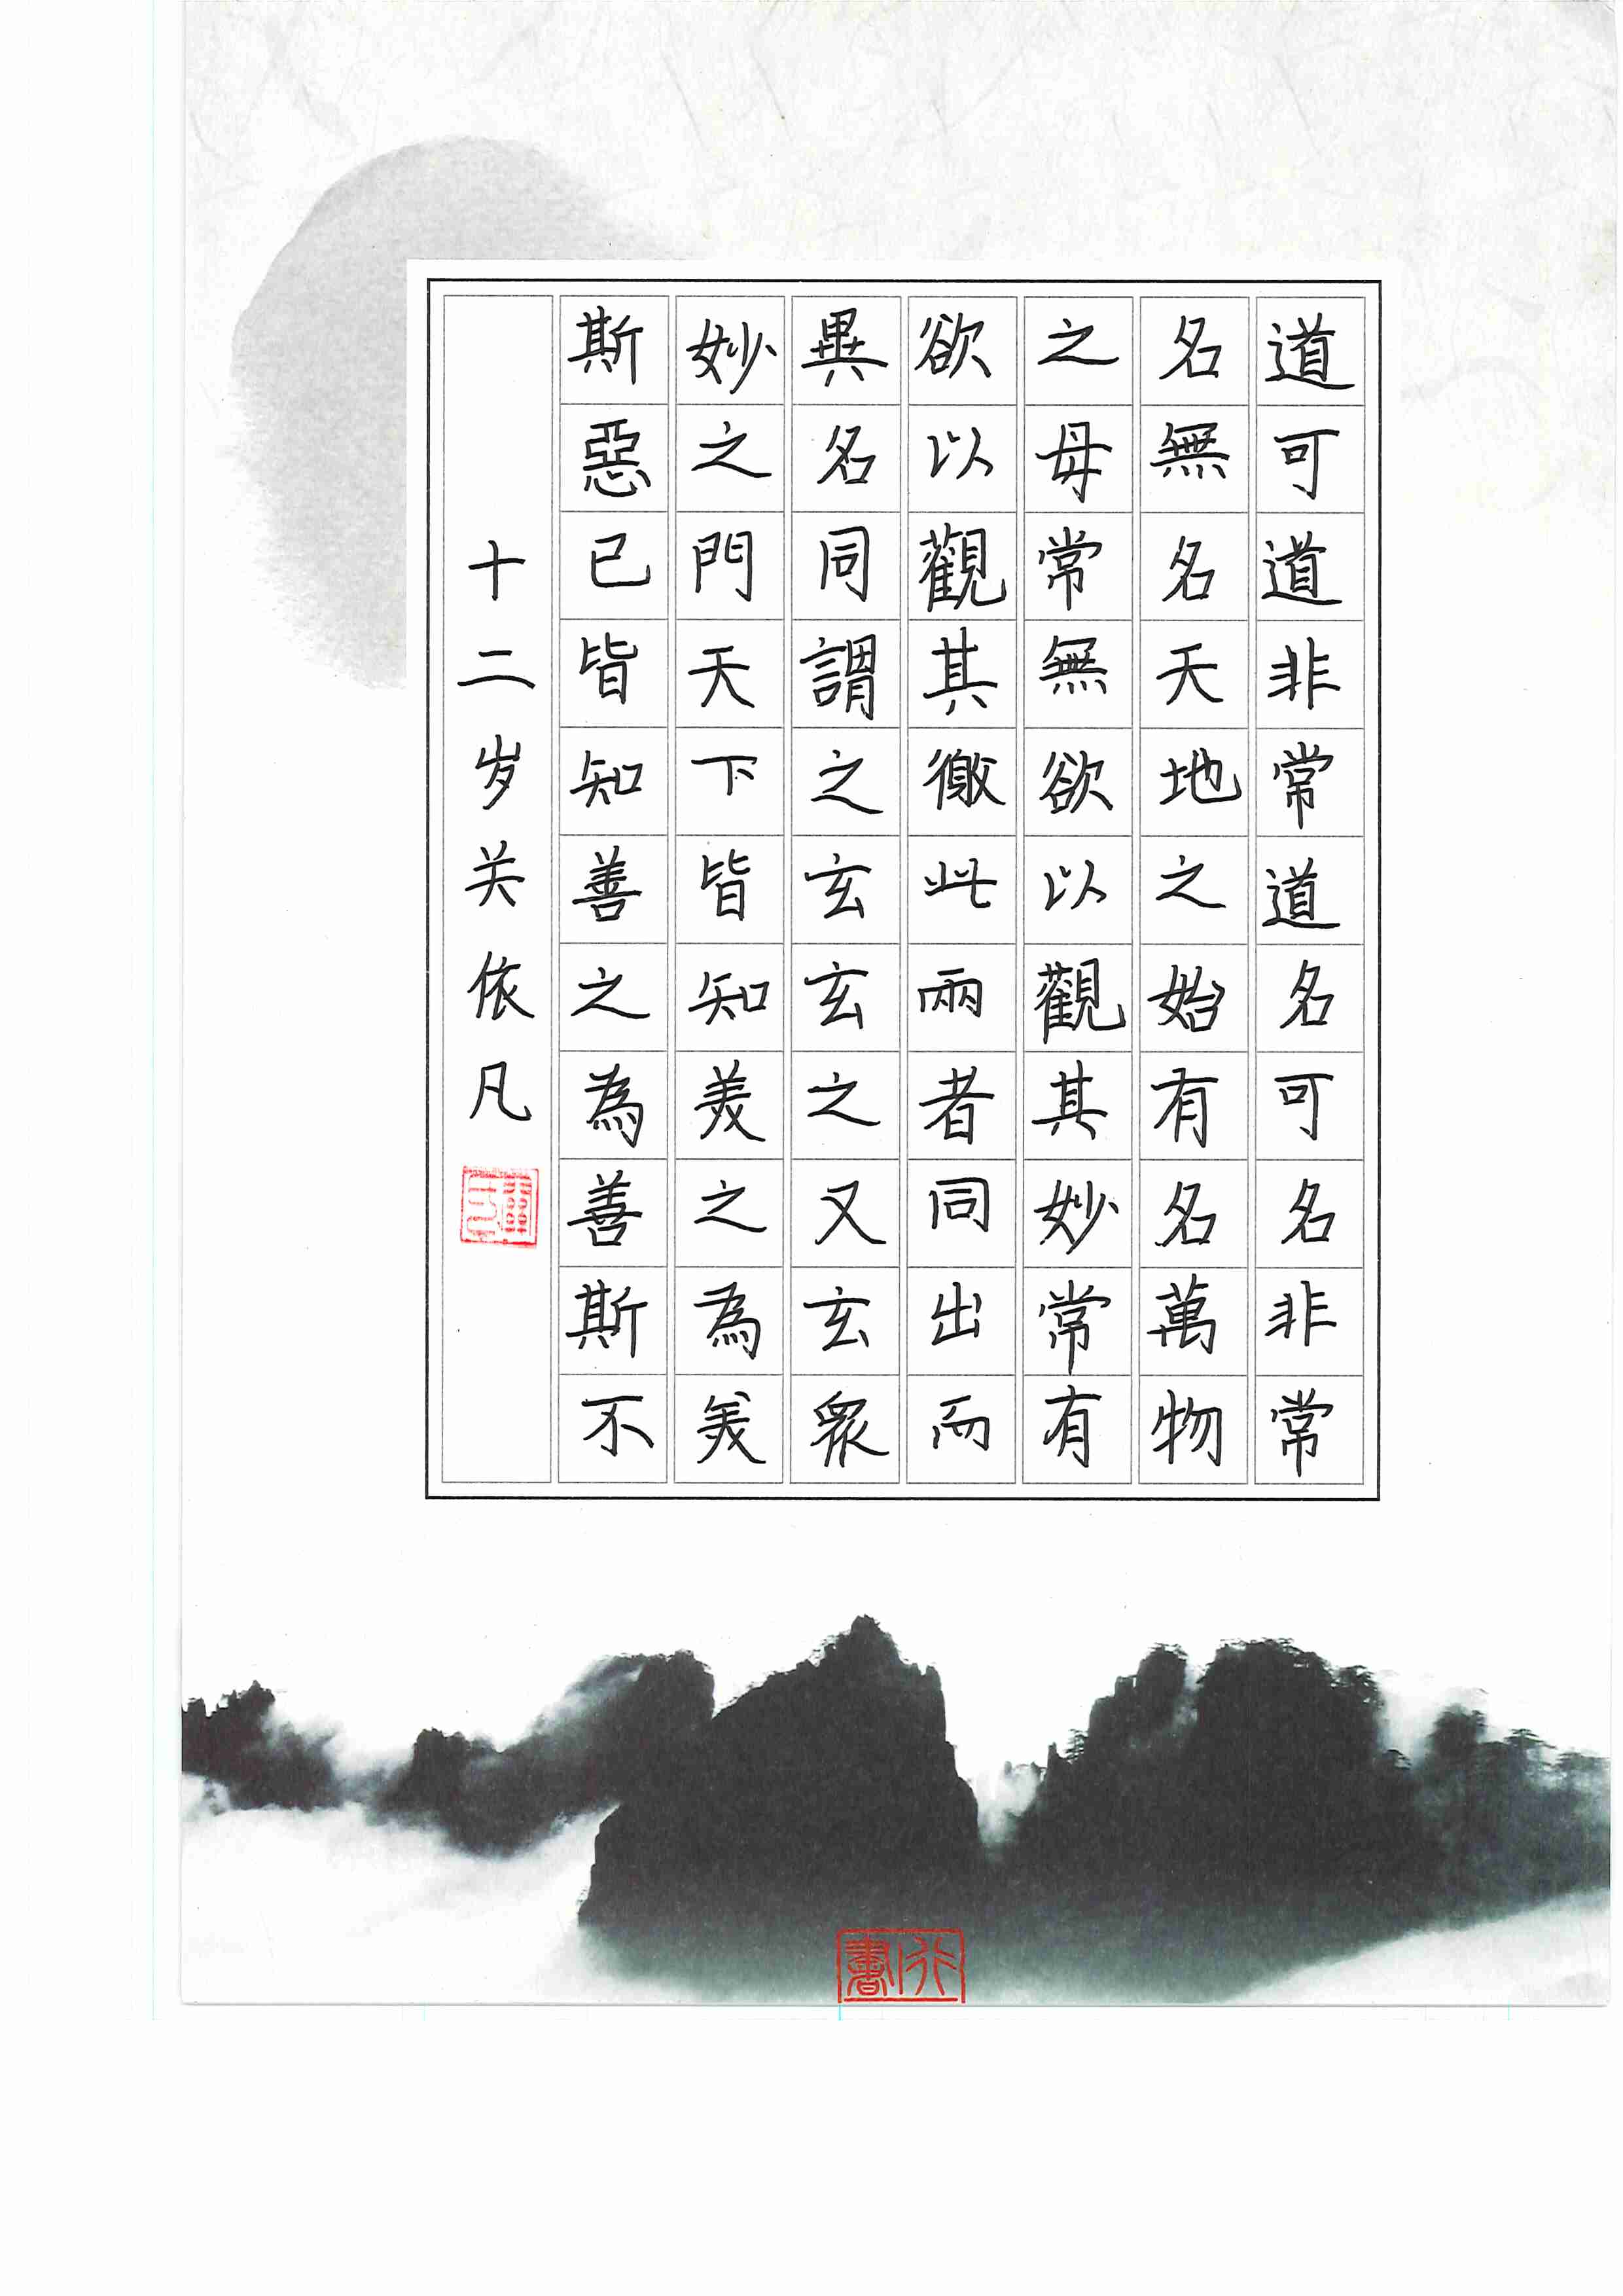 道可道非常道名可名非常
名無名天地之始有名萬物
之母常無欲以觀其妙常有
欲以觀其徼此兩者同出而
異名同謂之玄玄之又玄衆
妙之門天下皆知美之為美
斯惡已皆知善之為善斯不
十二岁关依凡
行書